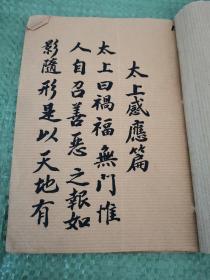 太上感應篇
太上曰禍福無門惟
人自召善惡之報如
影隨形是以天地有